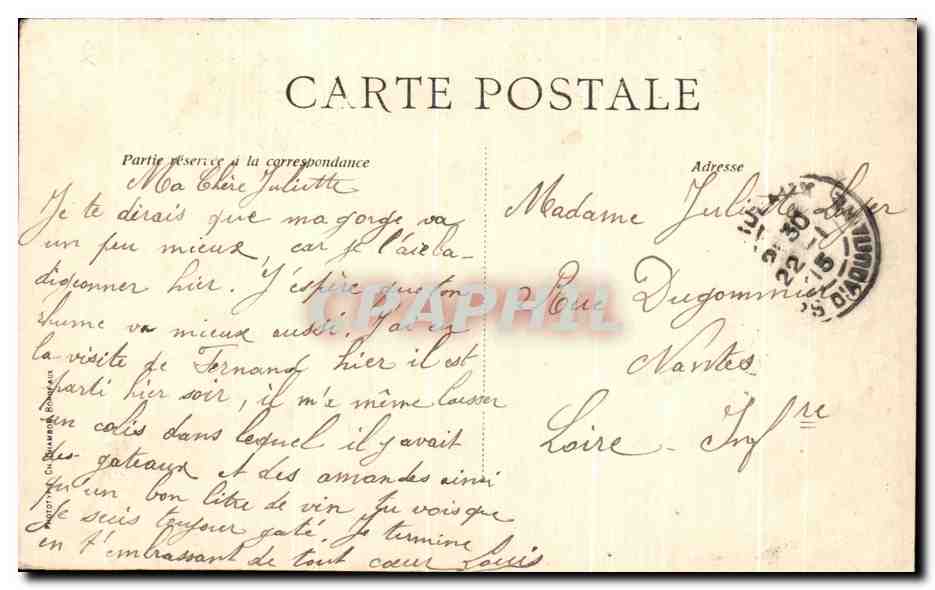 CARTE POSTALE
Partie réservée à la correspondance
Adresse
Ma Chère Juliette
Je te dirais que ma gorge va
un peu mieux, car je l'ai ba-
digeonner hier. J'espère que ton
rhume va mieux aussi. J'ai eu
la visite de Fernand hier il est
parti hier soir, il m'a même laisser
un colis dans lequel il y avait
des gateaux et des amandes ainsi
qu'un bon litre de vin tu vois que
je suis toujour gaté. Je termine
en t'embrassant de tout cœur Louis
Madame Juliette
2 Rue Dugommier
Nantes
Loire - Infre
30
22 - 1
15
D'AQUITAINE
CPAPHIL
PHOTOTYPIE CH. CHAMBON, BORDEAUX